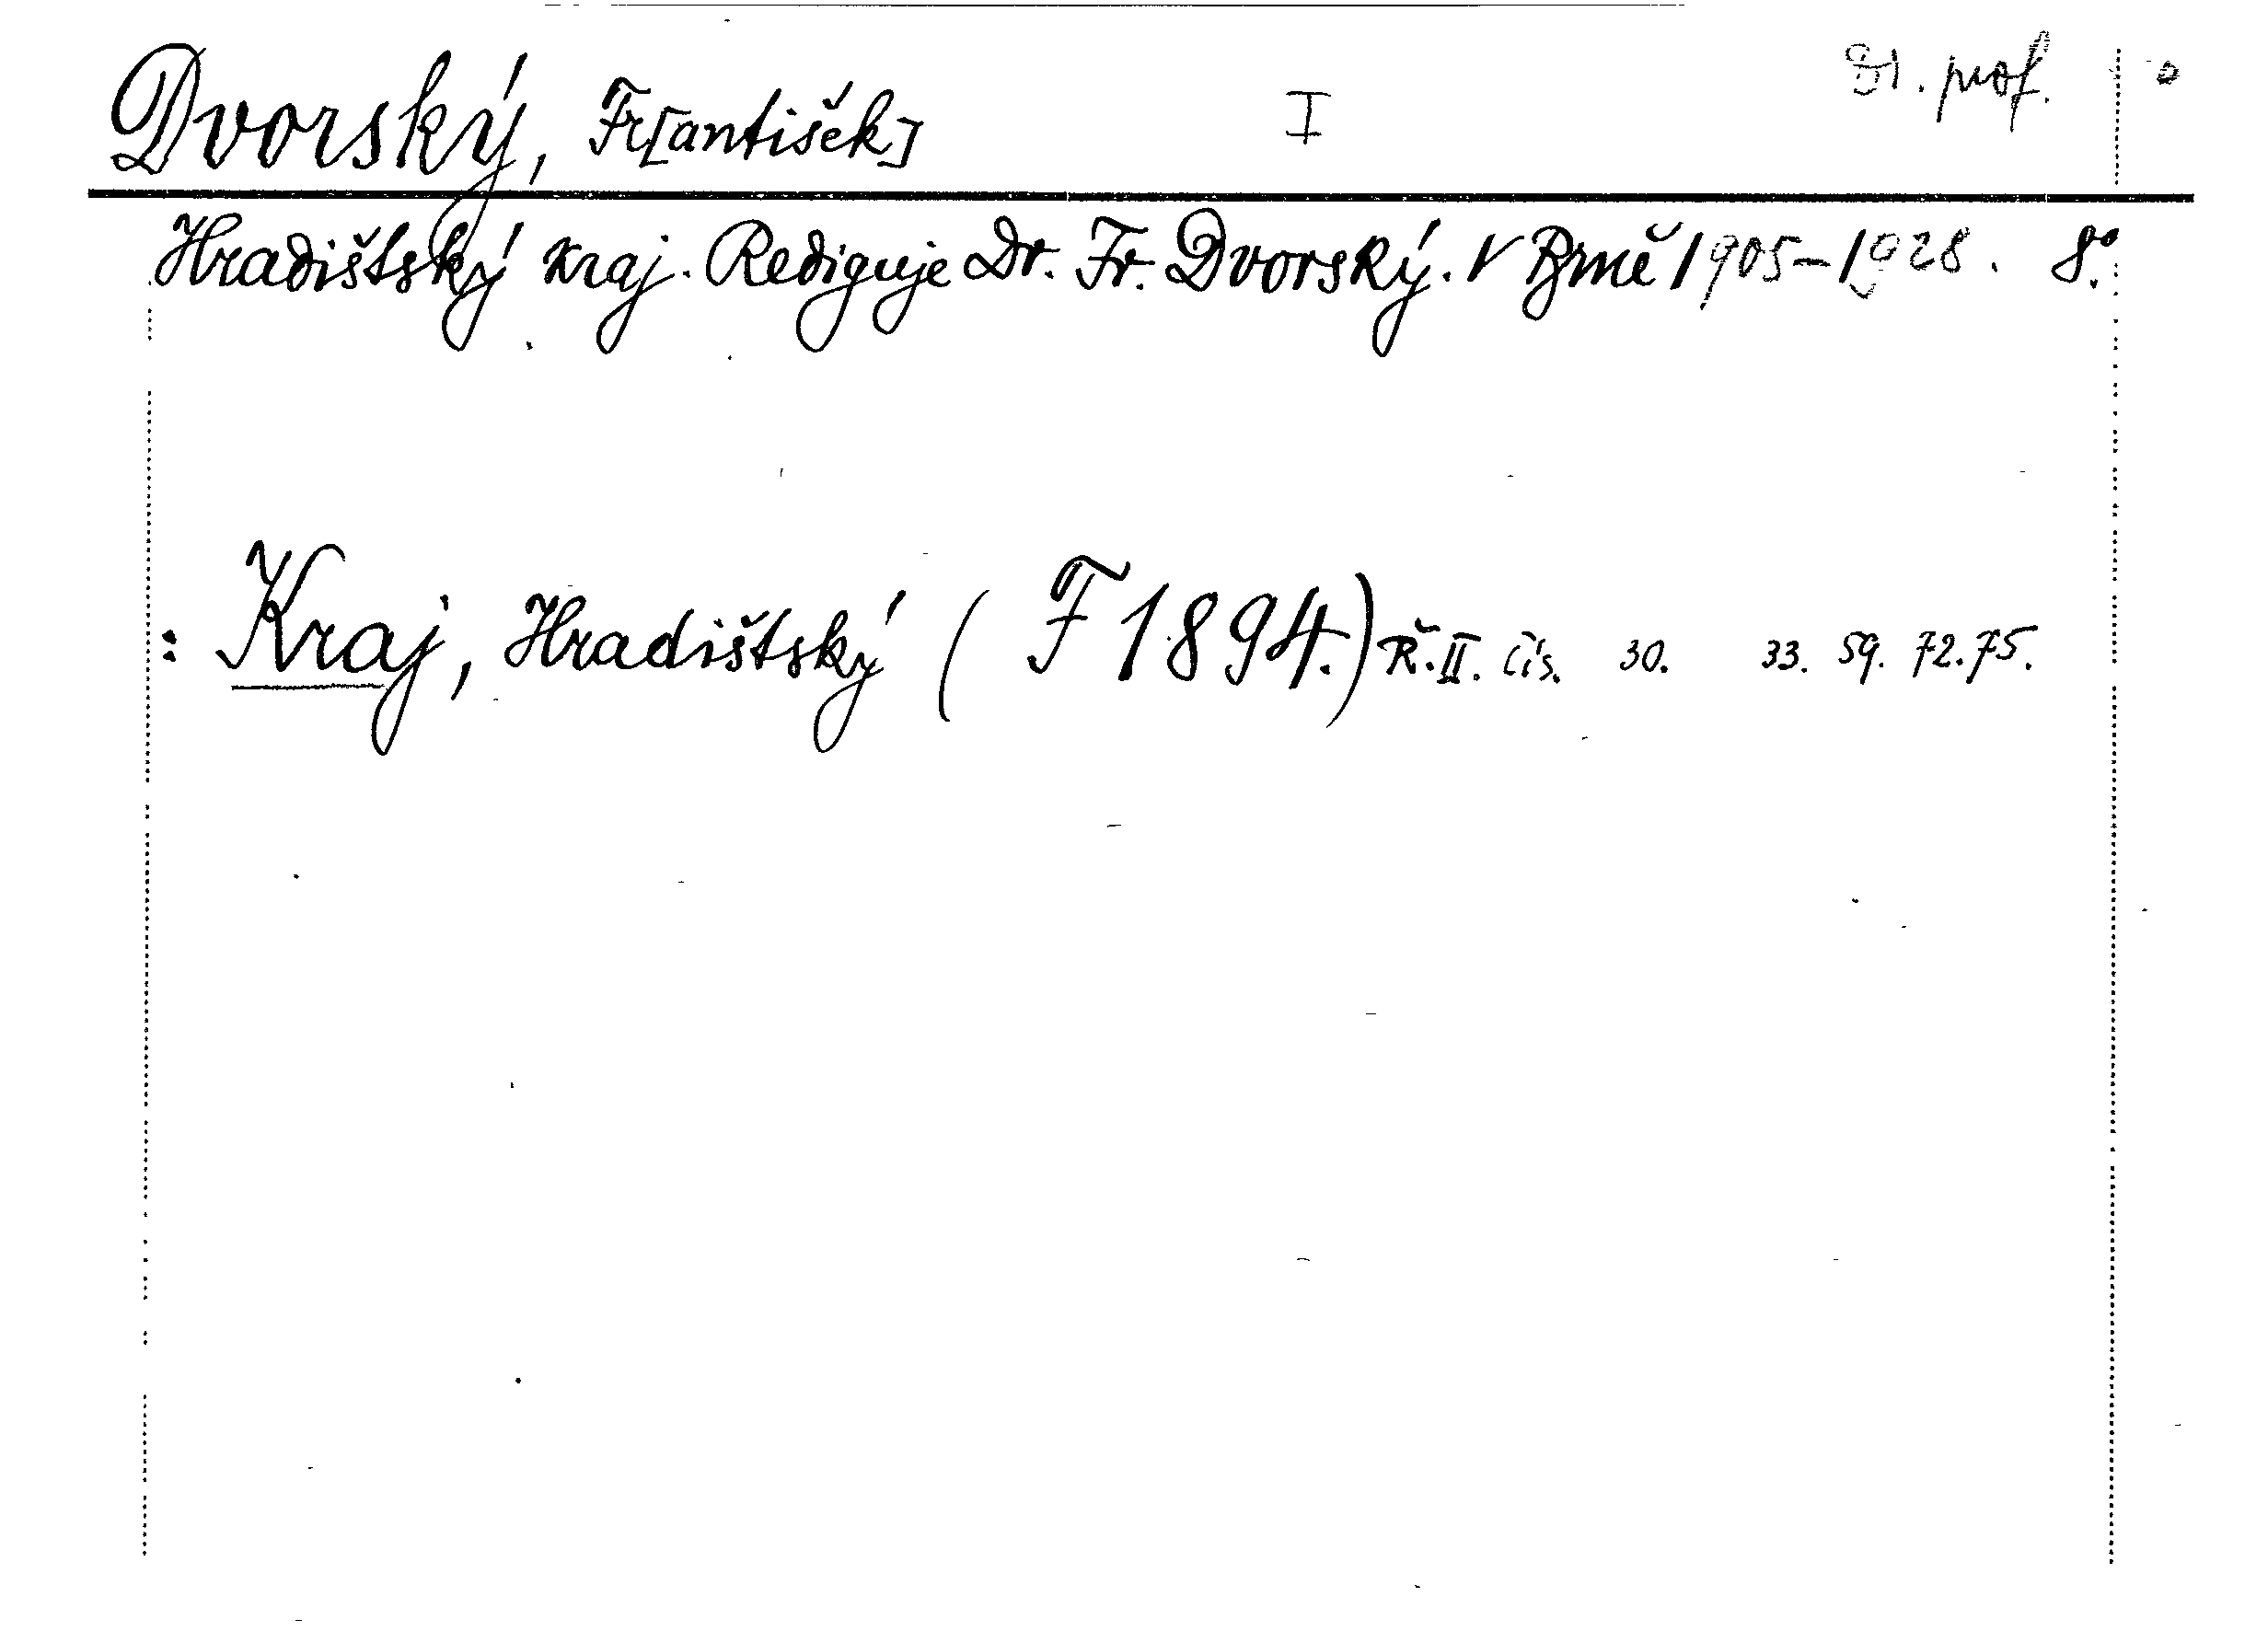 Dvorský, Fr[antišek] I prof.
Hradištský kraj. Rediguje Dr. Fr. Dvorský. V Brně 1905-1928. 8°.
: Kraj, Hradištský (F 1894.) Ř. II. čís. 30. 33. 59. 72. 75.